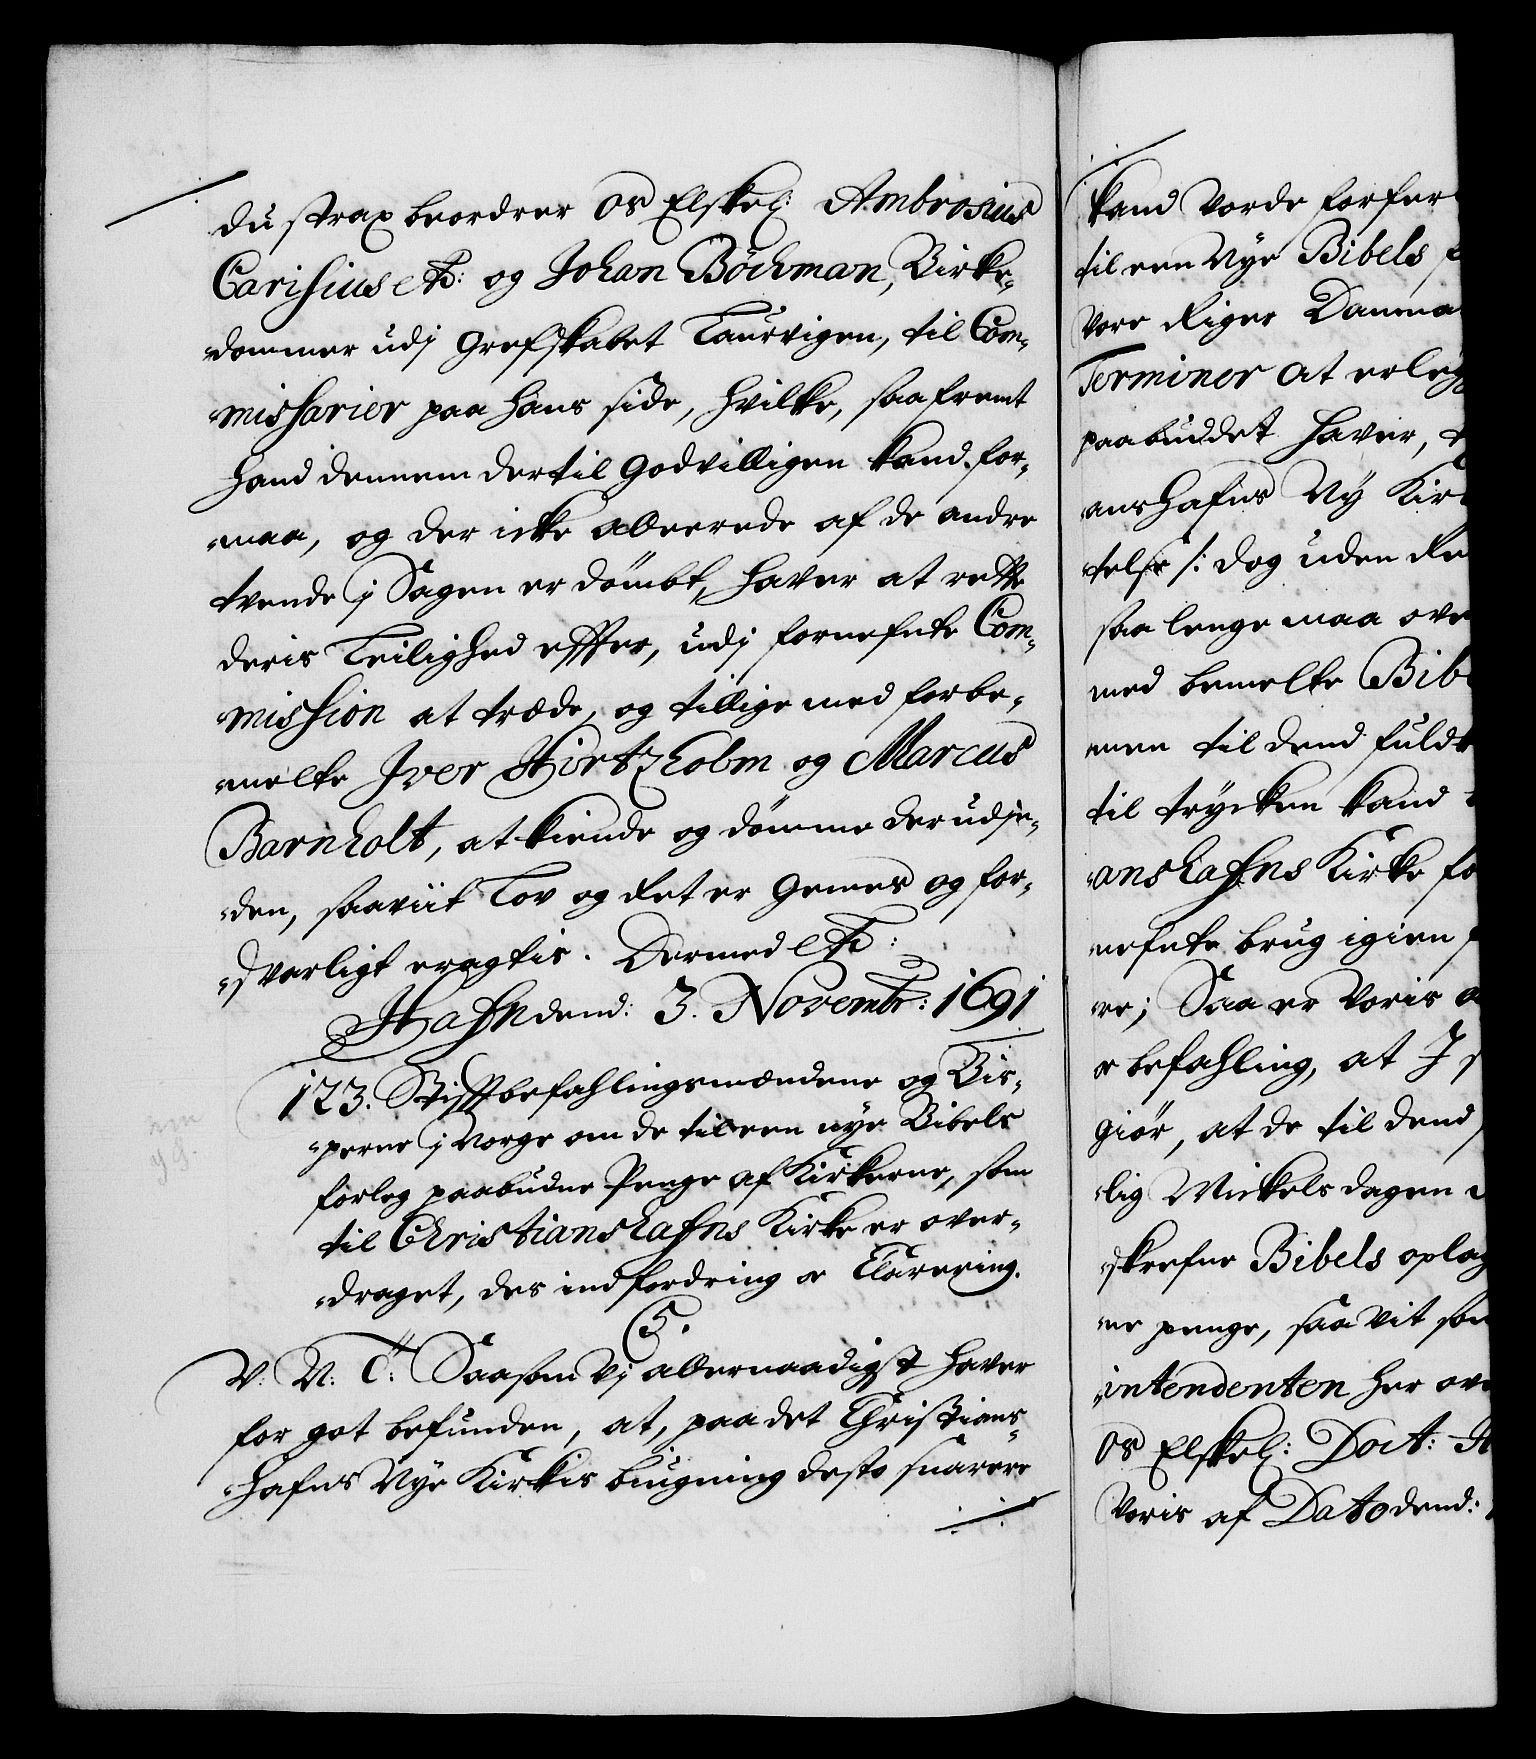 du strax beordrer os Elskel: Ambrosius
Carisius etc: og Johan Böckman, Birke-
dommer udj Grefskabet Laurvigen, til Com-
missarier paa hans side, hvilke, saafremt
hand dennem dertil godvilligen kand for-
maa, og der icke allereede af de andre
tvende j Sagen er dömbt, haver at rette
deris Leilighed effter, udj fornefnte Com-
mission at træde, og tillige med forbe-
melte Iver Hiortzholm og Marcus
Barnholt, at kiende og dömme derudje-
den, saaviit Lov og Ret er gemes og for-
svarligt eragtis. Dermed etc:
Hafn dend: 3. Novembr: 1691
123. Stifftbefahlingsmændene og Bis-
perne j Norge om de til een nye Bibels
forleg paabudne Penge af Kirkerne, som
til Christianshafns Kirke er over-
draget, des indfordring oc Clarering.
C5.
V: N: T: Saasom Vj allernaadigst haver
for got befunden, at, paa det Christians-
hafns Nye Kirkis bugning desto snarere
kand vorde forfer
til een Nye Bibels
Vore Riger Danma
Terminer at erleg
paabuddet haver,
anshafns Ny Kir
telse /: dog uden
saa lenge maa ove
med bemelte Bib
men til dend fuldk
til trycken kand
anshafns Kirke fo
nefnte brug igien
re; Saa er Voris
oc befahling, at I
giör, at de til dend
lig Mickels dagen
skrefne Bibels oplag
ne penge, saa vit som
intendenten her ov
os Elskel: Doct: H
Voris af Dato dend: